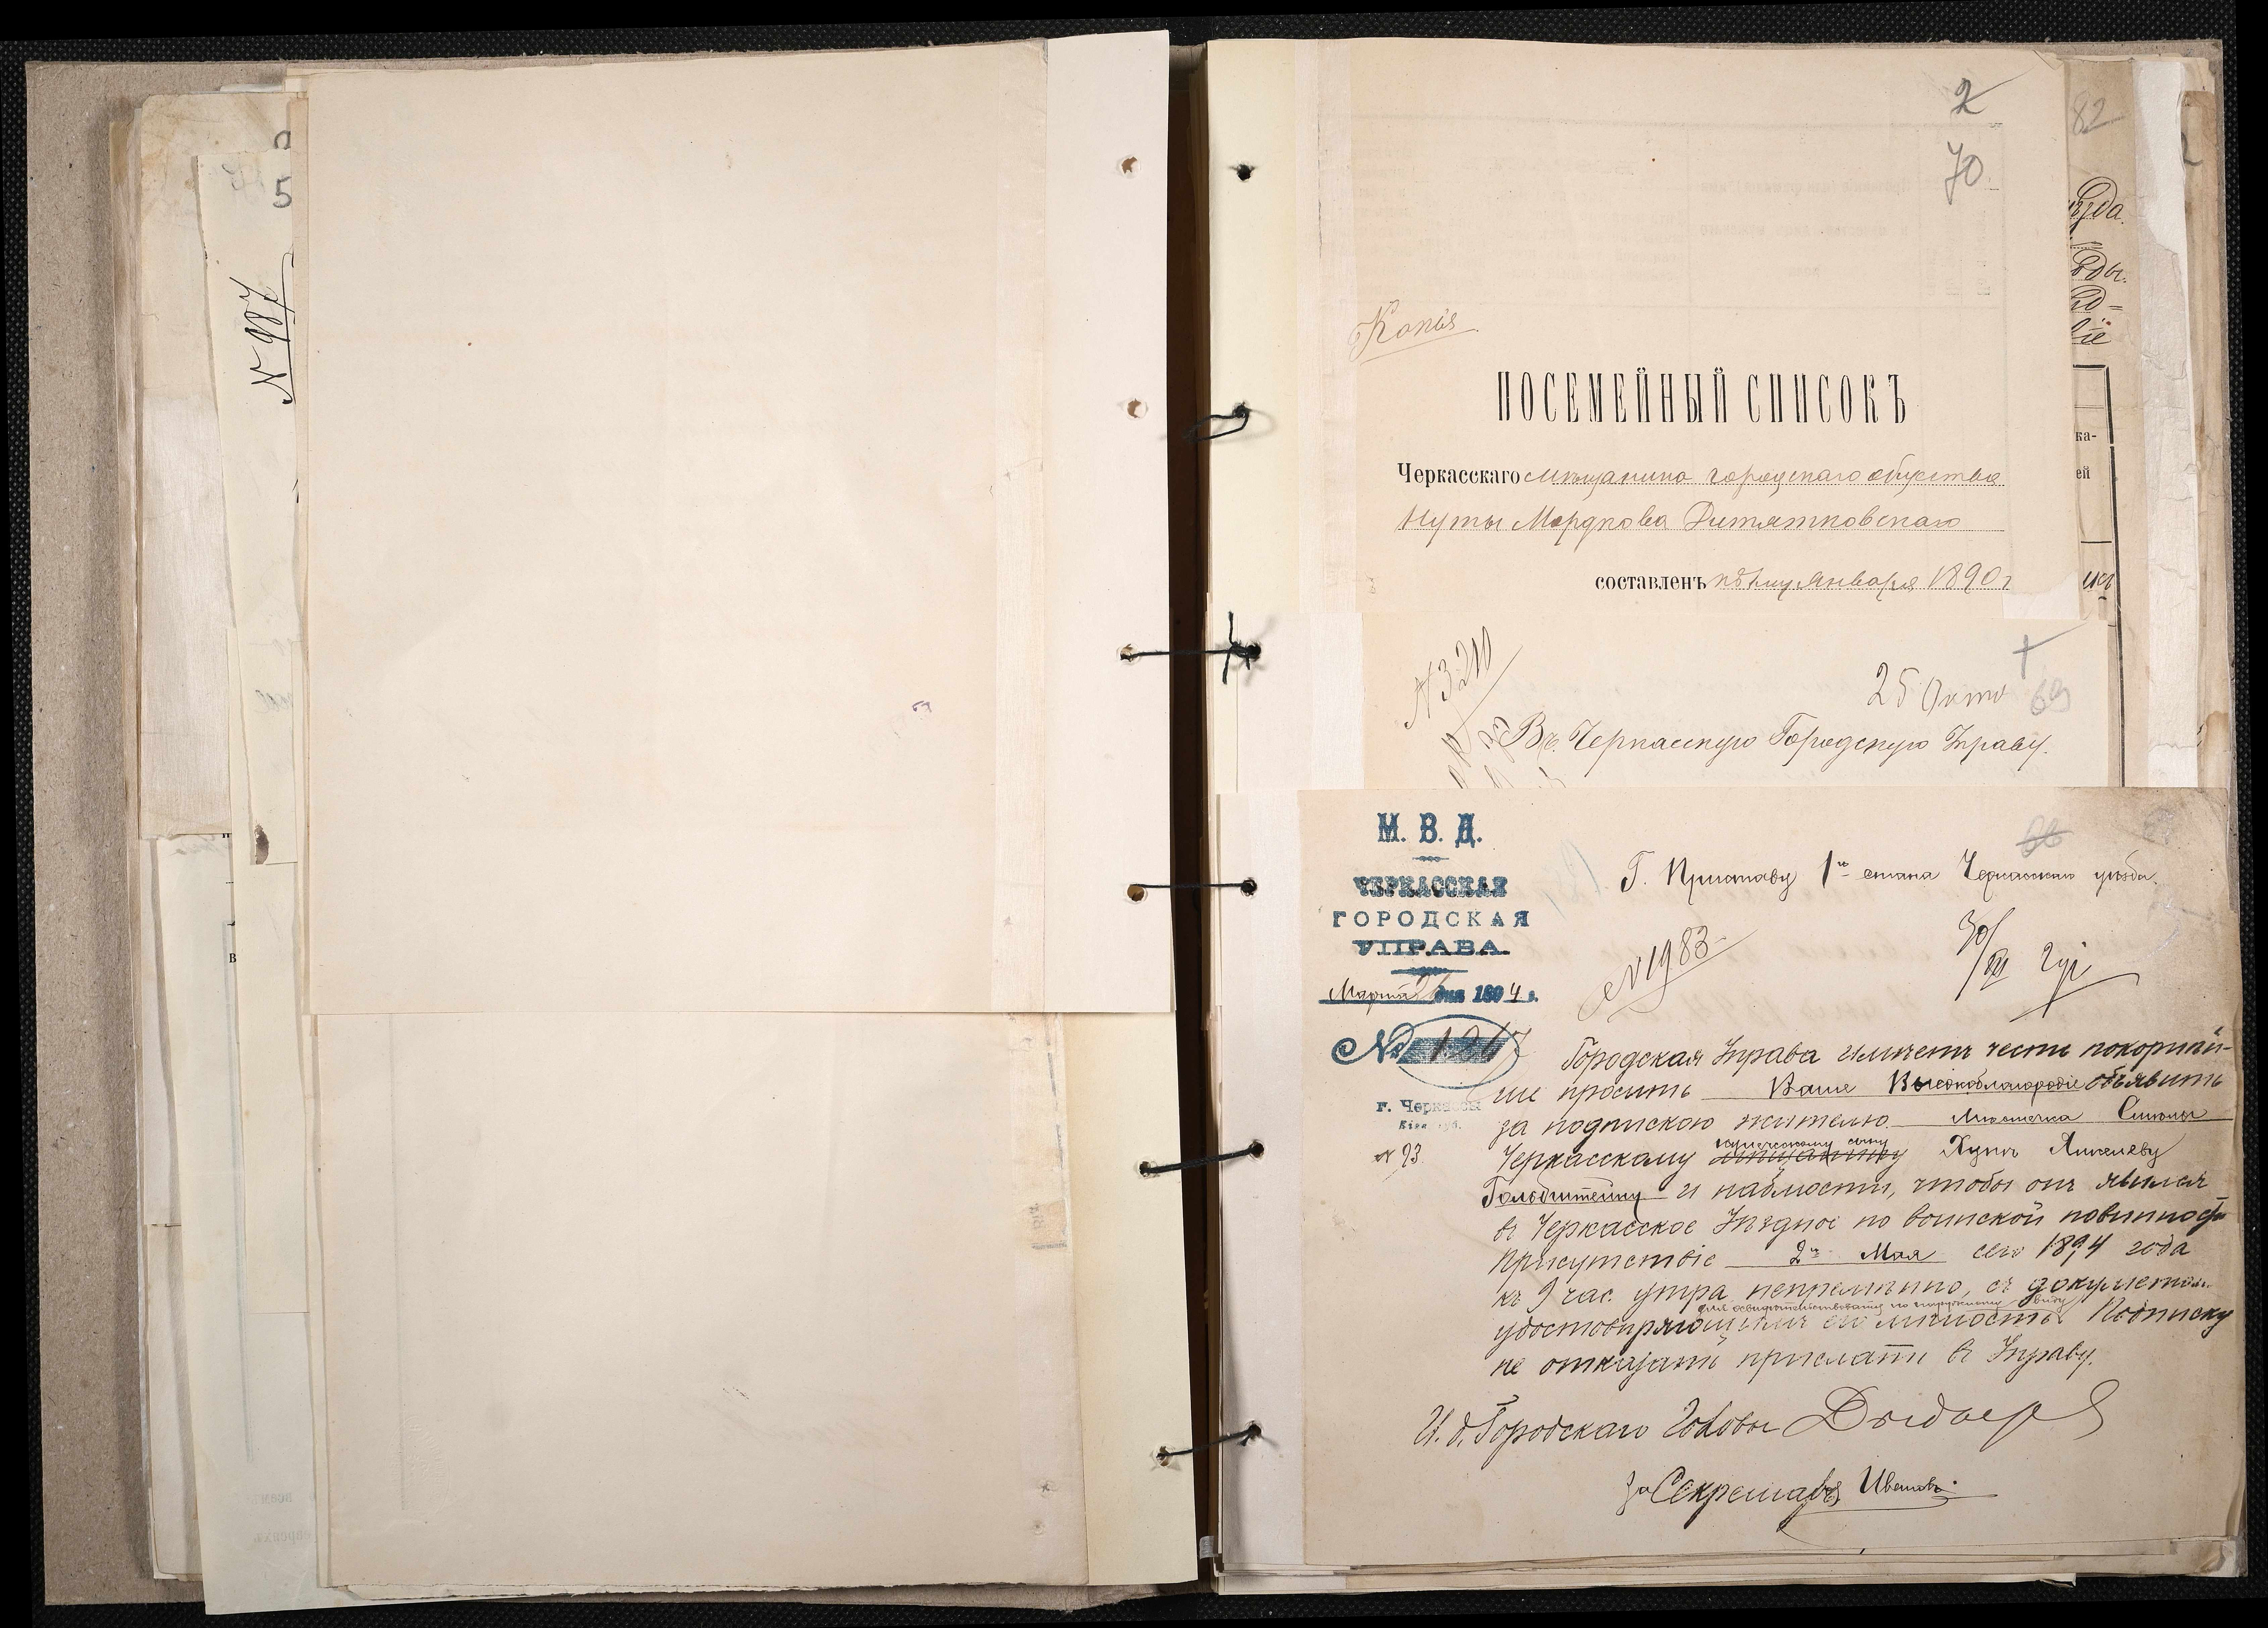 5
N 987
2
70
82
Копія
ПОСЕМЕЙНЫЙ СПИСОКЪ
Черкасскаго мѣщанина городскаго общества
Нуты Мордкова Дитятковскаго
составленъ къ 1му Января 1890 г
N 3210
25 Окто
69
Въ Черкасскую Городскую Управу.
М. В. Д.
ЧЕРКАССКАЯ
ГОРОДСКАЯ
УПРАВА
Марта дня 1894 г.
№ 1267
г. Черкассы
Кіев. губ.
N 93
66
Г. Приставу 1го стана Черкасскаго уѣзда.
N 1983
30/III
Городская Управа имѣетъ честь покорнѣй-
ше проситъ Ваше Высокоблагородіе объявить
за подпискою жителю мѣстечка Смѣлы
Черкасскому купеческому сыну мѣщанину Янкелеву
Гольдштейну и наблюсти, чтобы онъ явился
въ Черкасское Уѣздное по воинской повинности
Присутствіе 2го Мая сего 1894 года
къ 9 час. утра непремѣнно, съ документами
для освидѣтельствованія по наружному виду
удостовѣряющими его личность Подписку
не отказать прислать въ Управу.
И. д. Городскаго Головы
За Секретаря Ивановъ